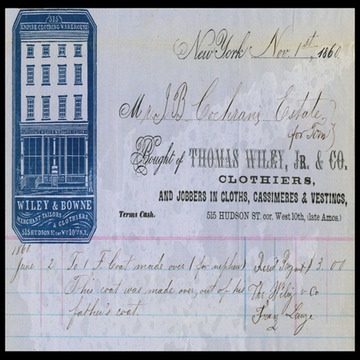 515
EMPIRE CLOTHING WAREHOUSE
WILEY & BOWNE
MERCHANT TAILORS
& CLOTHIERS
515 HUDSON ST. COR. WEST 10TH N.Y.
New York Nov. 1st 1860
Mrs J B Cochrans Estate
for Son
Bought of THOMAS WILEY, JR. & CO.
CLOTHIERS,
AND JOBBERS IN CLOTHS, CASSIMERES & VESTINGS,
Terms Cash.
515 HUDSON ST. cor. West 10th, (late Amos.)
1860
June 2 To 1 F. Coat made over (for nephew) Rec'd Payment $3.00
This coat was made over out of his Thos Wiley & Co
father's coat.